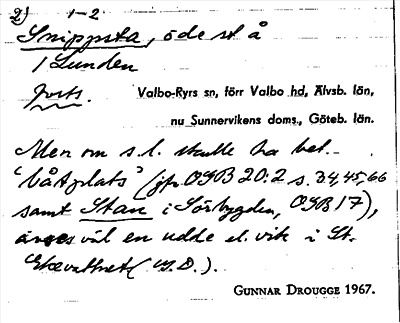 2) 1-2
Snippsta, öde st. å
/ Lunden
forts.
Valbo-Ryrs sn, förr Valbo hd, Älvsb. län,
nu Sunnervikens doms., Göteb. län.
Men om s.l. skulle ha bet.
'båtplats' (jfr OGB 20:2 s. 34, 45, 66
samt Stan i Sörbygden, OGB 17),
väl en udde el. vik i St.
(G.D.).
GUNNAR DROUGGE 1967.